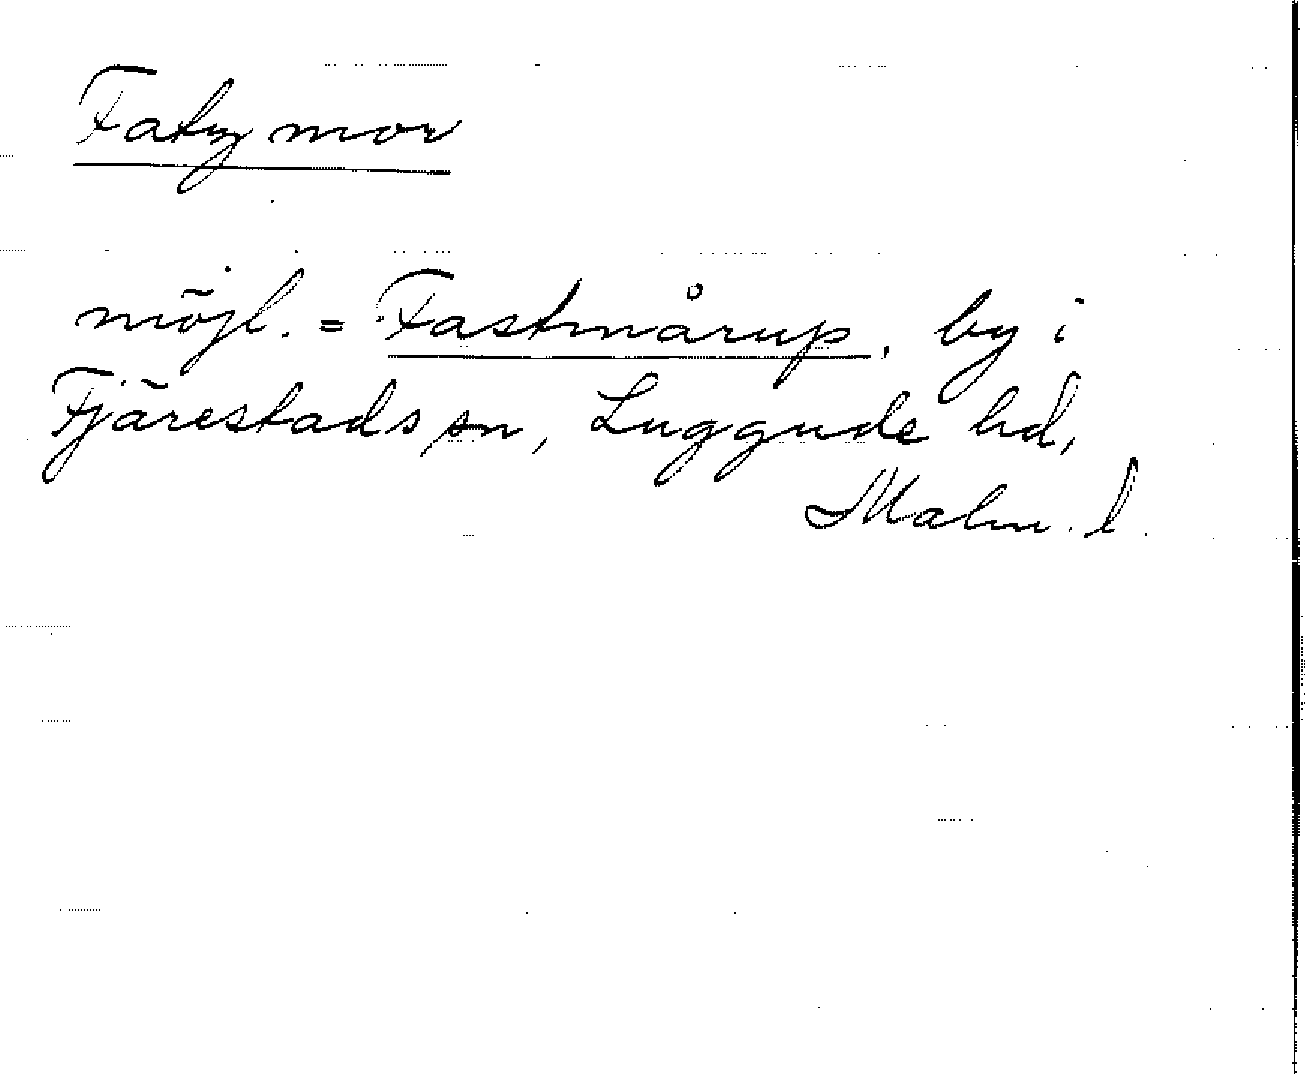 Fatzmor
möjl. = Fastmårup, by i
Fjärestads sn, Luggude hd,
Malm. l.